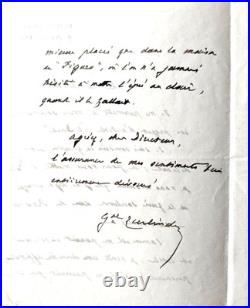 mieux placé que dans la maison
du "Figaro", où l'on n'a jamais
hésité à mettre l'épée au clair,
quand il le fallait.
Agréez, cher Directeur,
l'assurance de mes sentiments
entièrement dévoués
Gal